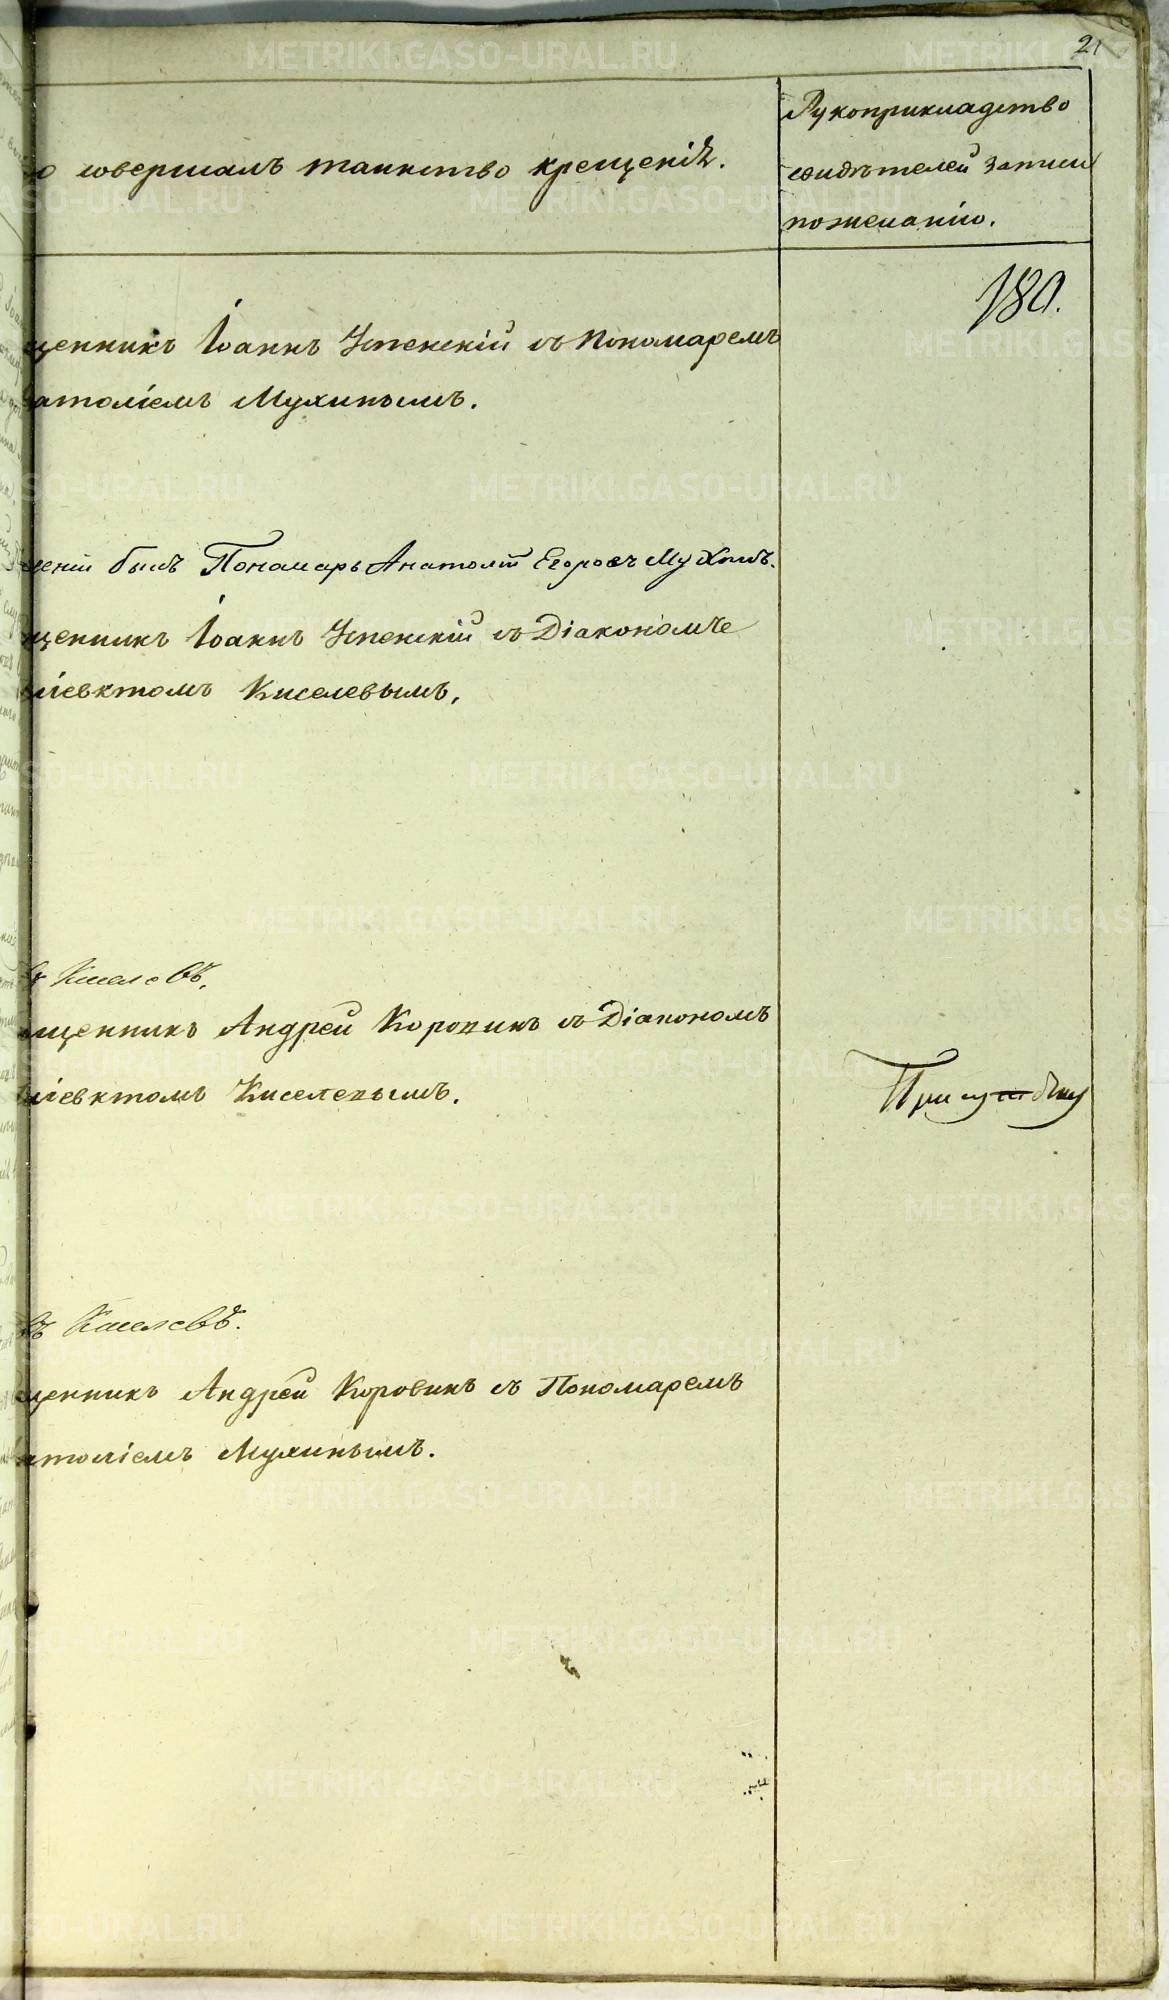 21
о совершалъ таинство крещенія.
Рукоприкладство
свидѣтелей записи
по желанію.
180.
щенникъ Іоаннъ Успенскій съ Пономаремъ
атоліемъ Мухинымъ.
щеніи былъ Пономарь Анатолій Егоровъ Мухинъ.
щенникъ Іоаннъ Успенскій съ Діакономъ
іевктомъ Киселевымъ,
Киселевъ.
щенникъ Андрей Коровинъ съ Діакономъ
іевктомъ Киселевымъ.
ъ Киселевъ.
щенникъ Андрей Коровинъ съ Пономаремъ
атоліемъ Мухинымъ.
METRIKI.GASO-URAL.RU